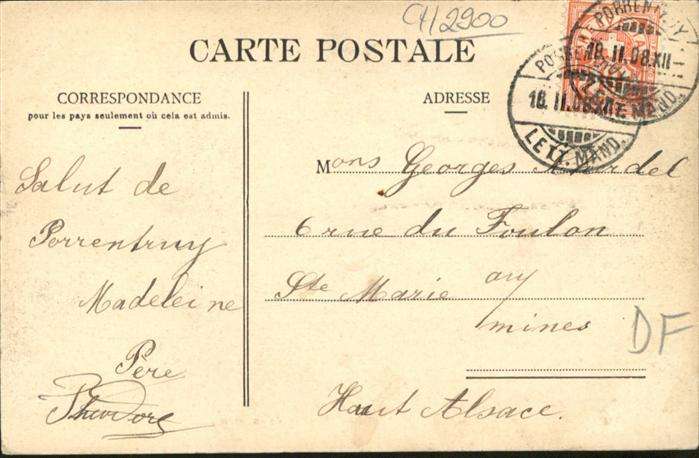 CH/2900
CARTE POSTALE
CORRESPONDANCE
pour les pays seulement où cela est admis.
ADRESSE
PORRENTRUY
18.II.08.XII
18.II.08
LETT. MAND.
Salut de
Porrentruy
Madeleine
Père
Théodore
Mons Georges
6 rue du Foulon
Ste Marie aux
mines
Haut Alsace.
DF